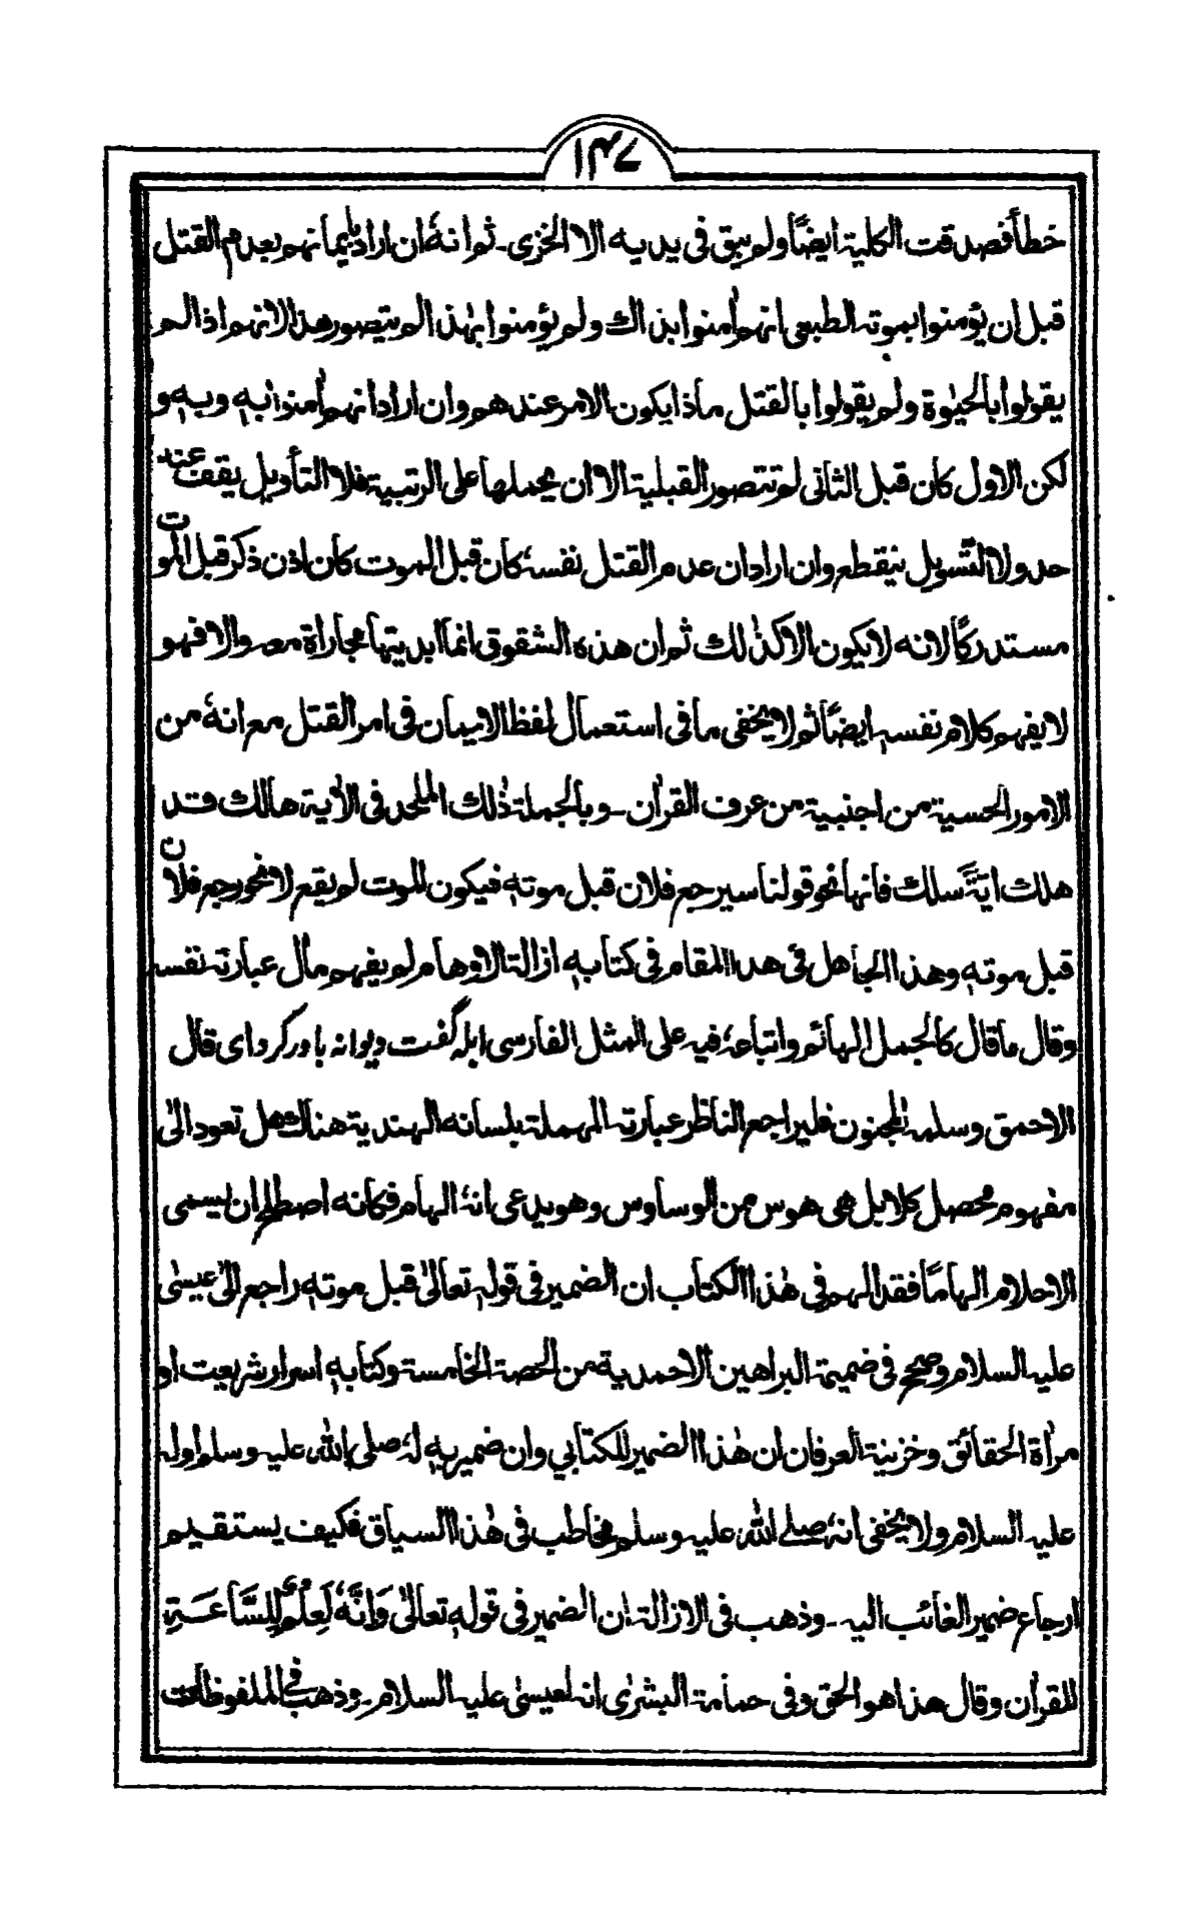 ۱۴۷
خطأ فصدقت الكلية ايضًا ولم يبق في يديه الا الخزى۔ ثم انهٗ ان اراد بايمانهم بعدم القتل
قبل ان يؤمنوا بموته الطبعى انهم اٰمنوا بذاك ولم يؤمنوا بهٰذا لم يتصور هذا لانهم اذا لم
يقولوا بالحيٰوة ولم يقولوا بالقتل ماذا يكون الامر عندهم وان اراد انهم اٰمنوا به وبه و
لكن الاول كان قبل الثانى لم تتصور القبلية الا ان يحملها على الرتبية فلا التأويل يقف عند
حد ولا التسويل ينقطع وان اراد ان عدم القتل نفسه كان قبل الموت كان اذن ذكر قبل الموت
مستدركًا لانه لا يكون الا كذٰلك ثم ان هذه الشقوق انما ابديتها مجاراة معه والا فهو
لا يفهم كلام نفسه ايضًا ثم لا يخفى ما فى استعمال لفظ الايمان فى امر القتل مع انهٗ من
الامور الحسية من اجنبية من عرف القراٰن۔ وبالجملة ذٰلك الملحد فى الاٰية هالك قد
هلك اية سلك فانها نحو قولنا سيرجع فلان قبل موته فيكون الموت لم يقع لا نحو رجع فلان
قبل موته وهذا الجاهل فى هذا المقام فى كتابه ازالة الاوهام لم يفهم ماٰل عبارة نفسه
وقال ما قال كالجمل الهائم واتباعه فيه على المثل الفارسى ابله گفت ديوانه باور كرد اى قال
الاحمق وسلمه المجنون فليراجع الناظر عبارته المهملة بلسانه الهندية هناك هل تعود الىٰ
مفهوم محصل كلا بل هى هوس من الوساوس وهو يدعى انهٗ الهام فكانه اصطلح ان يسمى
الاحلام الهامًا فقد الهم فى هٰذا الكتاب ان الضمير فى قوله تعالىٰ قبل موته راجع الىٰ عيسىٰ
عليه السلام وصحح فى ضميمة البراهين الاحمدية من الحصة الخامسة وكتابه اسرار شريعت او
مراٰة الحقائق وخزينة العرفان ان هٰذا الضمير للكتابي وان ضمير به لهٗ صلى الله عليه وسلم اوله
عليه السلام ولا يخفى انهٗ صلے اللّٰه عليه وسلم مخاطب فى هٰذا السياق فكيف يستقيم
ارجاع ضمير الغائب اليه۔ وذهب فى الازالة ان الضمير فى قوله تعالىٰ وَاِنَّهٗ لَعِلْمٌ لِّلسَّاعَةِ
للقراٰن وقال هذا هو الحق وفى حمامة البشرىٰ انه لعيسىٰ عليه السلام۔ وذهب فى الملفوظات